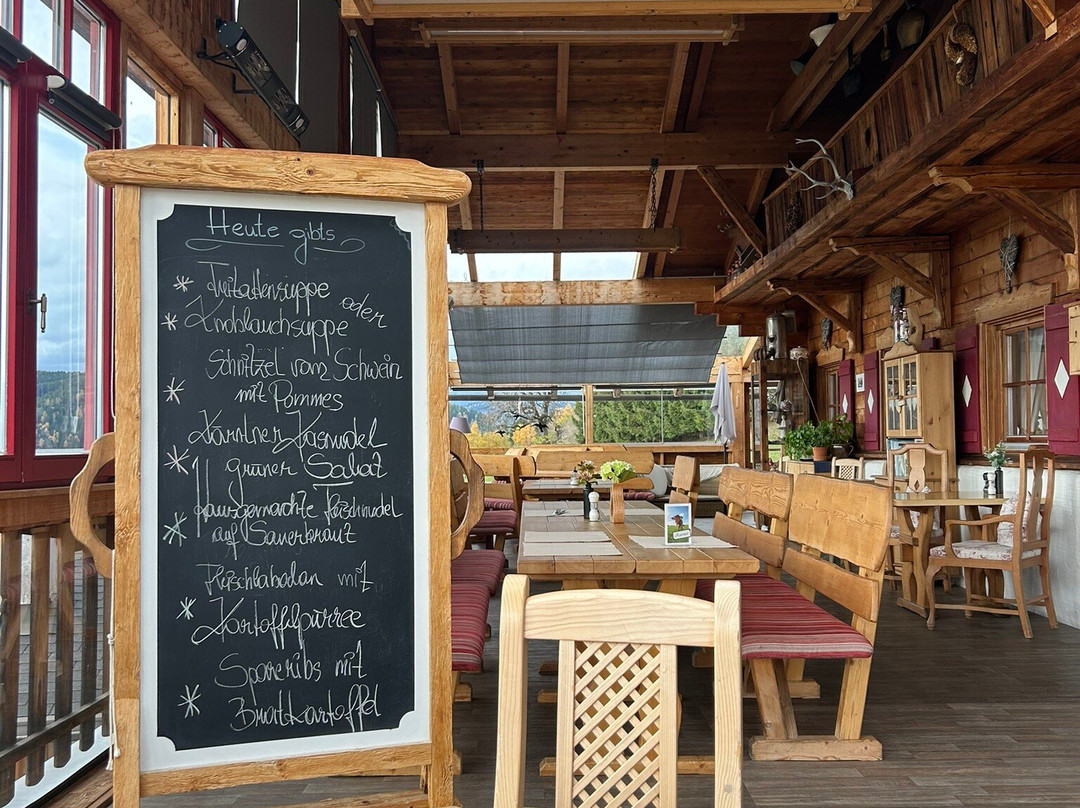 Heute gibts
Fritatensuppe
oder
Knoblauchsuppe
Schnitzel vom Schwein
mit Pommes
Kärntner Kasnudel
grüner Salat
Hausgemachte Fleischnudel
auf Sauerkraut
Fleischlabalan mit
Kartoffelpürree
Spareribs mit
Bratkartoffel